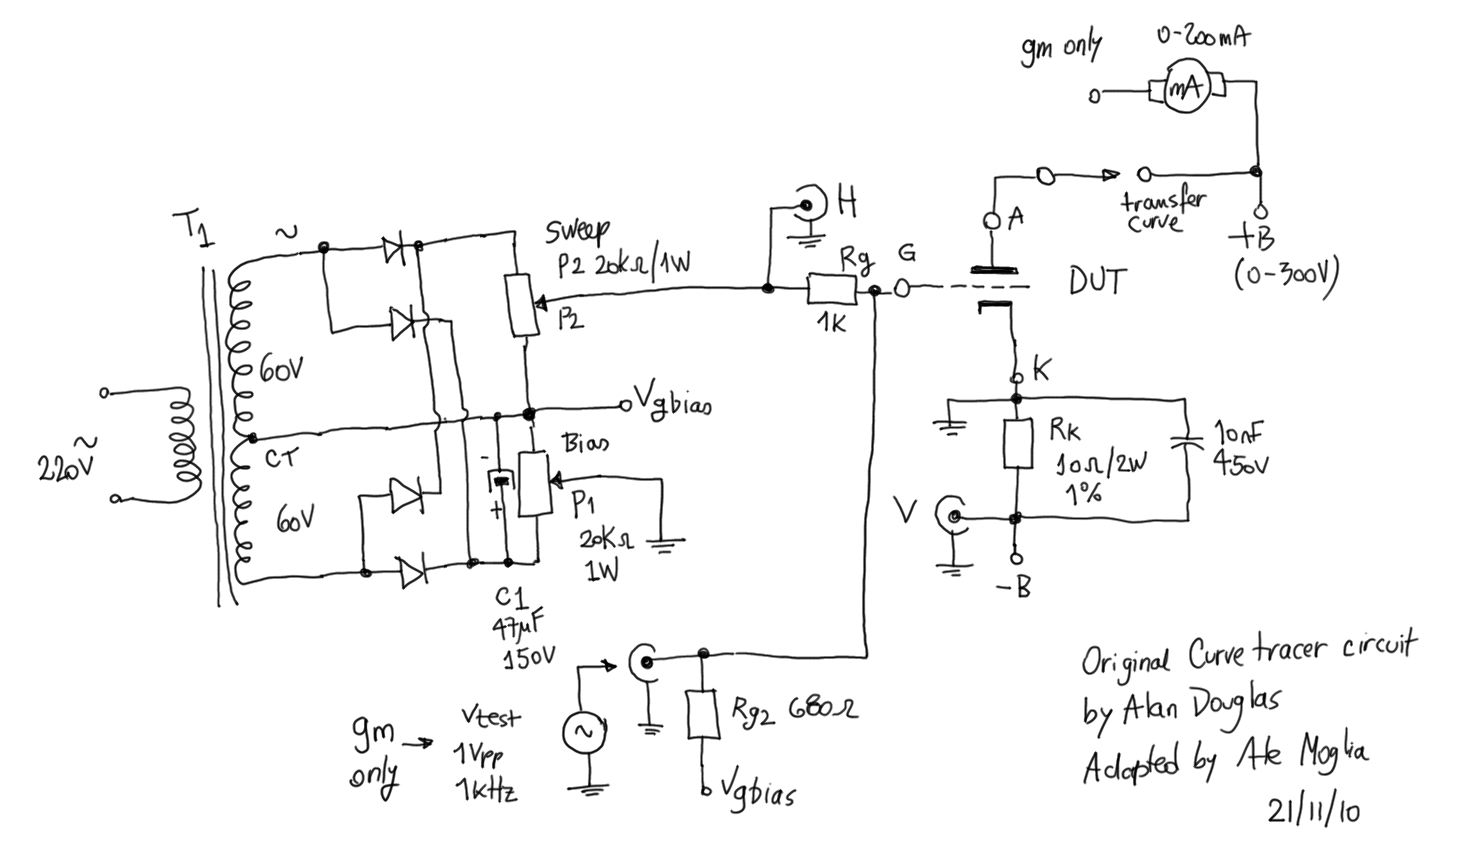 gm only
0-200mA
mA
T1
~
Sweep
P2 20kΩ/1W
P2
H
Rg
1K
G
A
transfer
curve
+B
(0-300V)
DUT
K
60V
220V
~
CT
60V
Vgbias
Bias
-
+
P1
20KΩ
1W
C1
47µF
150V
RK
10Ω/2W
1%
10nF
450V
V
-B
gm →
only
Vtest
1Vpp
1kHz
~
Rg2 680Ω
Vgbias
Original Curve tracer circuit
by Alan Douglas
Adapted by Ale Moglia
21/11/10